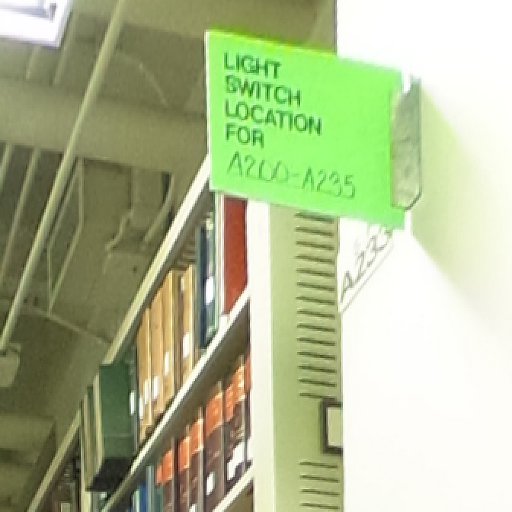 LIGHT
SWITCH
LOCATION
FOR
A200-A235
A233